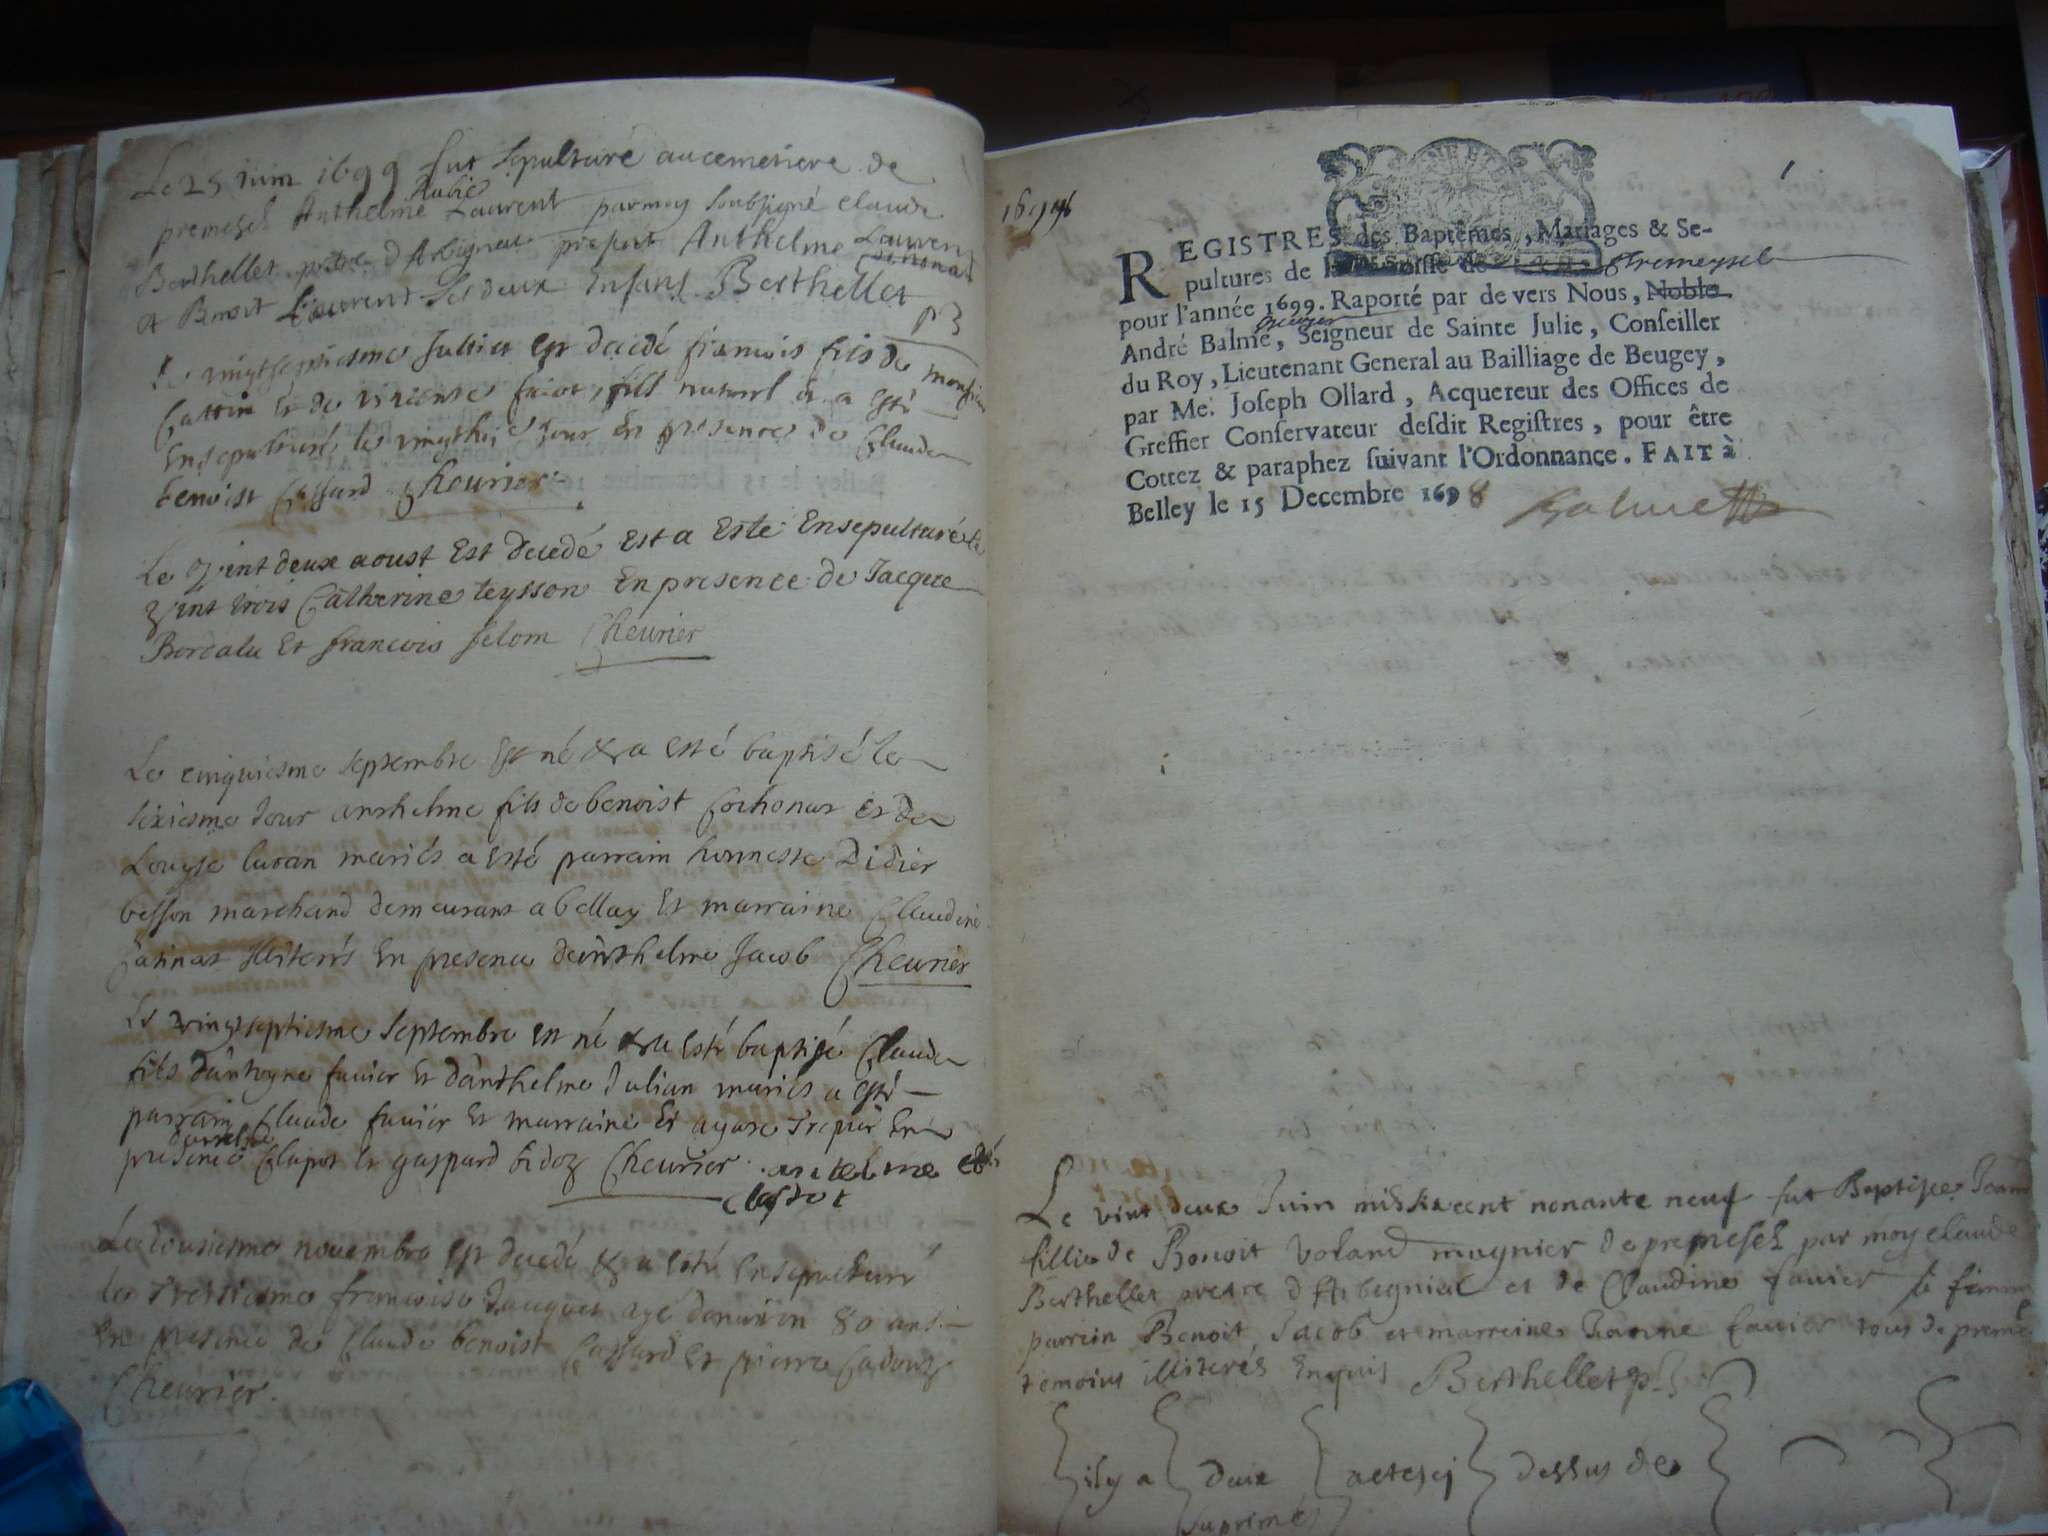 Le 25 iuin 1699 fut sepulturé au cemetiere de
premesel Anthelme Laurent parmoy soubsigné claude
Berthellet d'Arbigneu present Anthelme Lauren
et Benoit Laurent ses deux Enfans Berthellet
Le vingtseptiesme Juliet est decedé francois fils de monsieur
Cattin et de fill naturel et a esté
Ensepulturé le jour en presence de Claude
benoist Cassard Cheurier
Le vint deux aoust Est decedé Est a Este Ensepulturé le
vint trois Catherine teysson En presence de Jacque
Bordalu Et francois felom Cheurier
Le cinquiesme septembre Est né & a esté baptisé le
sixiesme Jour anthelme fils de benoist Cochonat et de
Louyse mariés a esté parrain honneste Didier
besson marchand demeurant a bellay Et marraine Claudine
illiterés En presence d'anthelme Jacob Cheurier
Le vingtseptiesme septembre est né & a esté baptisé Claude
fils d'antoyne fauier et d'anthelme Julian mariés a esté
parrain Claude fauier et marraine En
presence Clapot et gaspard bidoz Cheurier antelme
Clapot
Le novembre est decedé & a esté Ensepulturé
le treiziesme francoise Jacquet agé d'enuiron 80 ans
en presence de Claude benoist Cassard Et pierre
Cheurier.
1699
REGISTRES des Baptêmes, Mariages & Se-
pultures de la Parroisse de Premeysel
pour l'année 1699. Raporté par de vers Nous, Noble
André Balme, Seigneur de Sainte Julie, Conseiller
du Roy, Lieutenant General au Bailliage de Beugey,
par Me. Joseph Ollard, Acquereur des Offices de
Greffier Conservateur desdit Registres, pour être
Cottez & paraphez suivant l'Ordonnance. FAIT à
Belley le 15 Decembre 1698
Le vint deux Juin mil six cent nonante neuf fut Baptisee
fillie de Benoit Voland mugnier de premesel par moy claude
Berthellet pretre d'Arbegnieu et de Claudine fauier sa femme
parrein Benoit Jacob et marreine Jeanne fauier tous de
temoins illiterés Enquis Berthellet
ily a deux actes cy dessus de
suprimé